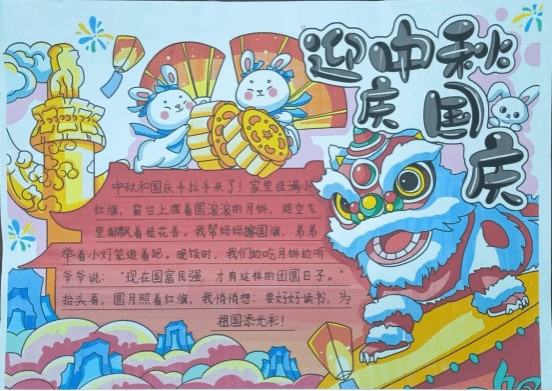 迎中秋
庆国庆
中秋和国庆手拉手来了！家里挂满小
红旗，窗台上摆着圆滚滚的月饼，连空气
里都飘着桂花香。我帮妈妈擦国旗，弟弟
举着小灯笼追着跑。晚饭时，我们边吃月饼边听
爷爷说：“现在国富民强，才有这样的团圆日子。”
抬头看，圆月照着红旗，我悄悄想：要好好读书，为
祖国添光彩！